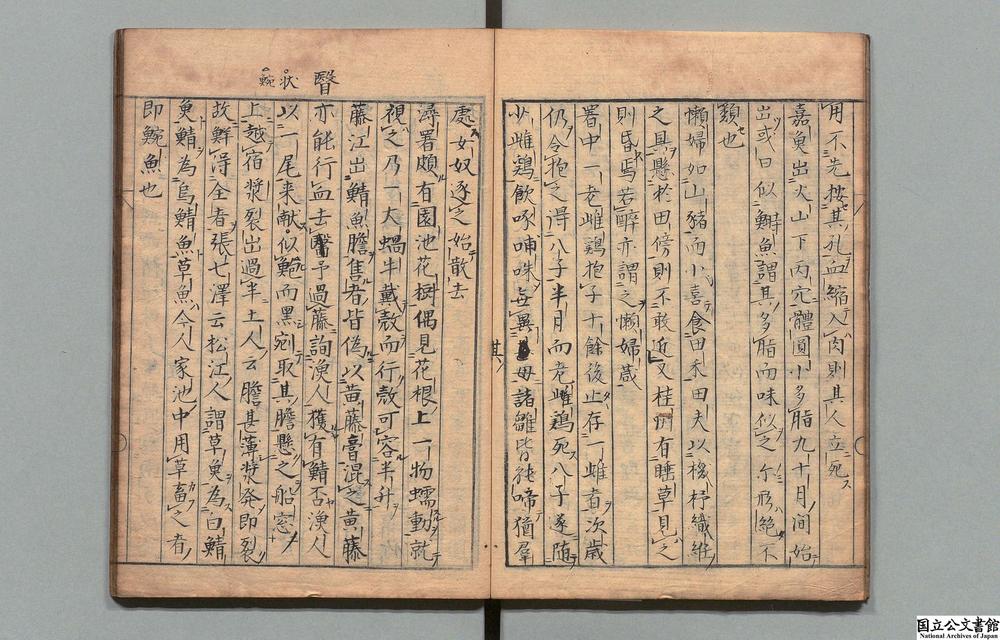 用不先按其孔血縮入肉則其人立死
嘉魚出火山下丙穴體圓小多脂九十月間始
出或曰似鰣魚謂其多脂而味似之尓形絕不
類也
懶婦如山豬而小喜食田禾田夫以機杼織維
之具懸於田傍則不敢近又桂州有睡草見之
則昏焉若醉亦謂之懶婦葴
署中一老雌鶏抱子十餘後止存一雌者次歲
仍令抱之得八子半月而老雌鶏死八子遂随
少雌鶏飲啄哺咮無異母諸雛皆能啼猶羣
其
處女奴逐之始散去
潯署頗有園池花樹偶見花根上一物蠕動就
視之乃一大蝸牛戴殼而行殼可容半升
藤江出鯖魚膽售者皆偽以黄藤膏混之黄藤
亦能行血去醫予過藤詢漁人獲有鯖否漁人
以一尾来献似鮑而黒剜取其膽懸之船窓
上越宿漿裂出過半土人云膽甚薄漿発即裂
故鮮得全者張七澤云松江人謂草魚為白鯖
魚鯖為烏鯖魚草魚今人家池中用草畜之者
即鯇魚也
醫
状
鯇
国立公文書館
National Archives of Japan